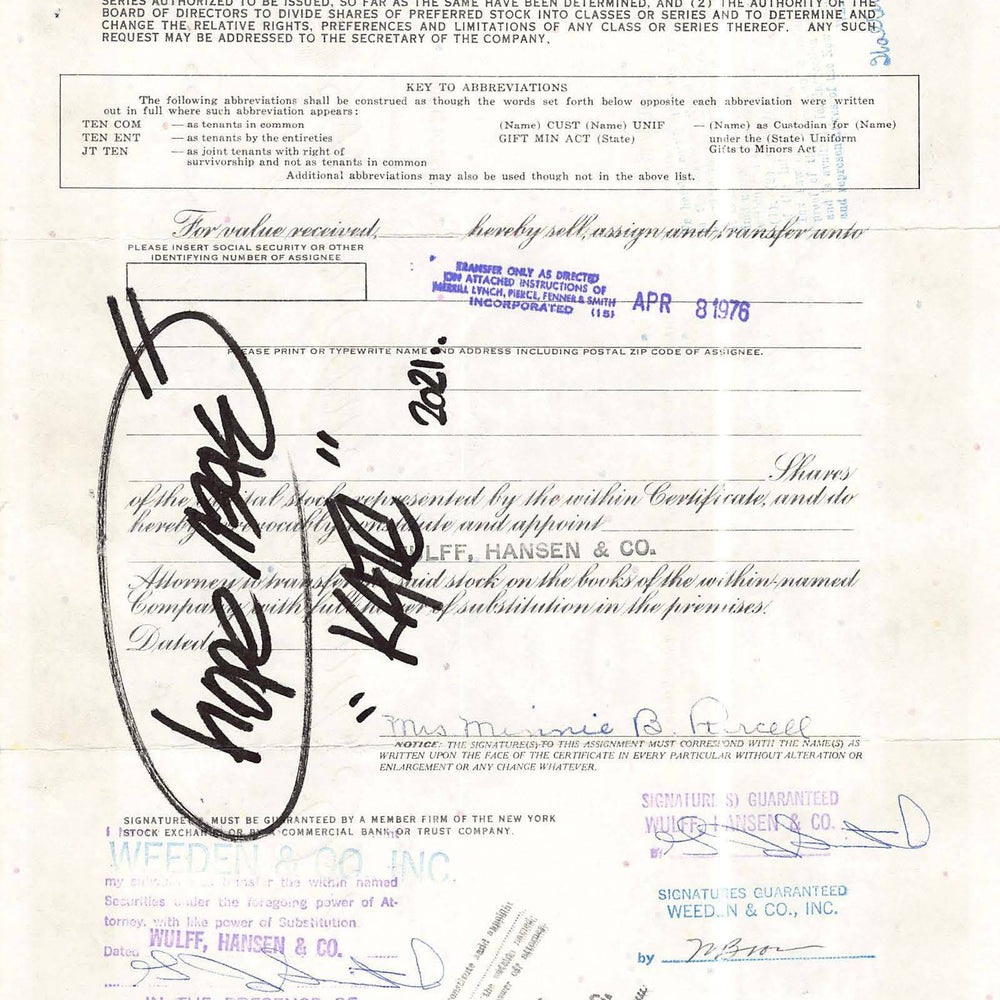 SERIES AUTHORIZED TO BE ISSUED, SO FAR AS THE SAME HAVE BEEN DETERMINED, AND (2) THE AUTHORITY OF THE
BOARD OF DIRECTORS TO DIVIDE SHARES OF PREFERRED STOCK INTO CLASSES OR SERIES AND TO DETERMINE AND
CHANGE THE RELATIVE RIGHTS, PREFERENCES AND LIMITATIONS OF ANY CLASS OR SERIES THEREOF. ANY SUCH
REQUEST MAY BE ADDRESSED TO THE SECRETARY OF THE COMPANY.
KEY TO ABBREVIATIONS
The following abbreviations shall be construed as though the words set forth below opposite each abbreviation were written
out in full where such abbreviation appears:
TEN COM — as tenants in common
TEN ENT — as tenants by the entireties
JT TEN — as joint tenants with right of
survivorship and not as tenants in common
(Name) CUST (Name) UNIF — (Name) as Custodian for (Name)
GIFT MIN ACT (State) under the (State) Uniform
Gifts to Minors Act
Additional abbreviations may also be used though not in the above list.
For value received, hereby sell, assign and transfer unto
PLEASE INSERT SOCIAL SECURITY OR OTHER
IDENTIFYING NUMBER OF ASSIGNEE
TRANSFER ONLY AS DIRECTED
ON ATTACHED INSTRUCTIONS OF
MERRILL LYNCH, PIERCE, FENNER & SMITH
INCORPORATED (15)
APR 8 1976
PLEASE PRINT OR TYPEWRITE NAME AND ADDRESS INCLUDING POSTAL ZIP CODE OF ASSIGNEE.
2021..
Shares
of the capital stock represented by the within Certificate, and do
hereby irrevocably constitute and appoint
WULFF, HANSEN & CO.
Attorney to transfer the said stock on the books of the within-named
Company with full power of substitution in the premises.
Dated
hope
Mrs Minnie B.
NOTICE: THE SIGNATURE(S) TO THIS ASSIGNMENT MUST CORRESPOND WITH THE NAME(S) AS
WRITTEN UPON THE FACE OF THE CERTIFICATE IN EVERY PARTICULAR WITHOUT ALTERATION OR
ENLARGEMENT OR ANY CHANGE WHATEVER.
SIGNATURE(S) MUST BE GUARANTEED BY A MEMBER FIRM OF THE NEW YORK
STOCK EXCHANGE OR BY A COMMERCIAL BANK OR TRUST COMPANY.
SIGNATURE(S) GUARANTEED
WULFF, HANSEN & CO.
BY
WEEDEN & CO. INC.
my substitute to transfer the within named
Securities under the foregoing power of At-
torney, with like power of Substitution
Dated
WULFF, HANSEN & CO.
SIGNATURES GUARANTEED
WEEDEN & CO., INC.
by
IN THE PRESENCE OF